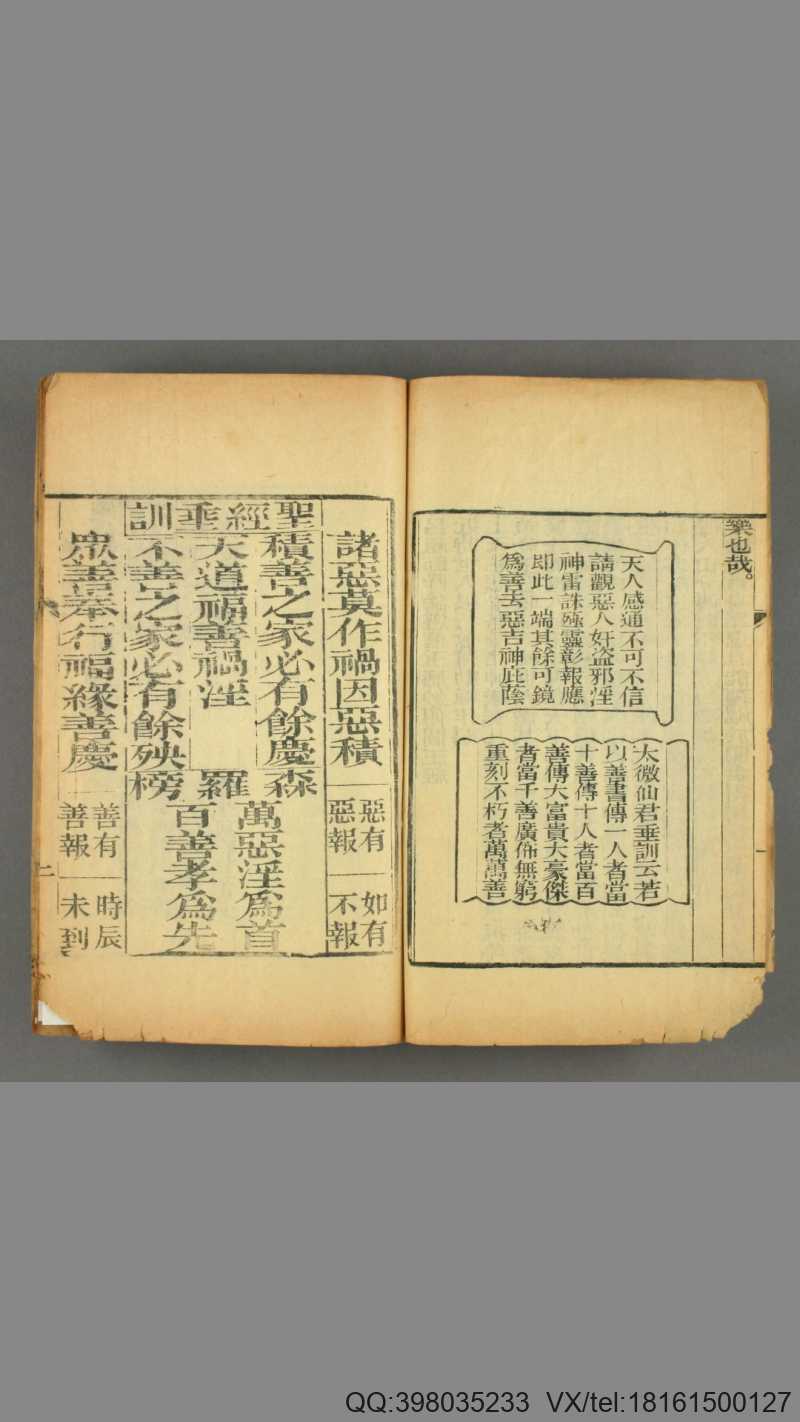 樂也哉。
天人感通不可不信
請觀惡人奸盜邪淫
神雷誅殛靈彰報應
即此一端其餘可鏡
為善去惡吉神庇蔭
太微仙君垂訓云若
以善書傳一人者當
十善傳十人者當百
善傳大富貴大豪傑
者當千善廣佈無窮
重刻不朽者萬萬善
一
諸惡莫作禍因惡積
惡有
惡報
如有
不報
聖經垂訓
積善之家必有餘慶
天道福善禍淫
不善之家必有餘殃
森羅榜
萬惡淫為首
百善孝為先
眾善奉行福緣善慶
善有
善報
時辰
未到
二
QQ:398035233 VX/tel:18161500127